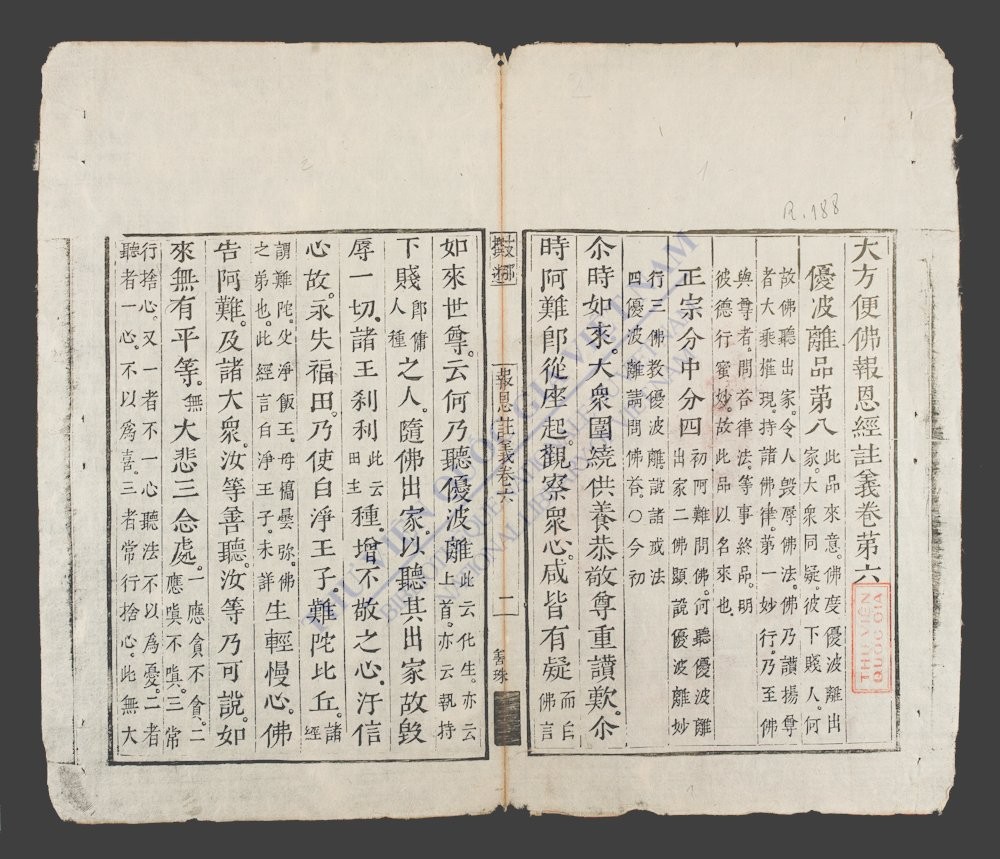 大方便佛報恩經註義卷第六
優波離品第八 此品來意。佛度優波離出家。大衆同疑。彼下賤人。何
故佛聽出家。令人毀辱佛法。佛乃讚揚尊者大乘摧現。持諸佛律。第一妙行。乃至佛
與尊者。問荅律法。等事終品。明彼德行蜜妙。故此品以名來也。
正宗分中分四 初阿難問佛。何聽優波離出家二佛顯說優波離妙
行三佛教優波離說諸戒法四優波離請問佛荅。○今初
尒時如來。大衆圍繞供養恭敬尊重讚歎。尒
時阿難郎從座起。觀察衆心。咸皆有疑 而白佛言
報恩註義卷六
二
如來世尊。云何乃聽優波離 此云化生。亦云上首。亦云執持
下賤 郎傭人種 之人。隨佛出家。以聽其出家故毀
辱一切。諸王刹利 此云田主 種。增不敬之心。汙信
心故。永失福田。乃使白淨王子難陀比丘。 諸經
謂難陀。父淨飯王。母憍曇弥。佛之弟也。此經言白淨王子。未詳 生輕慢心。佛
告阿難。及諸大衆。汝等善聽。汝等乃可說。如
來無有平等。 無 大悲三念處。 一應貪不貪。二應嗔不嗔。三常
行捨心。又一者不一心聽法不以爲憂。二者聽者一心。不以爲喜。三者常行捨心。此無大
R.188
THƯ VIỆN
QUỐC GIA
THƯ VIỆN QUỐC GIA VIỆT NAM
BIBLIOTHÈQUE NATIONALE DU VIETNAM
NATIONAL LIBRARY OF VIETNAM